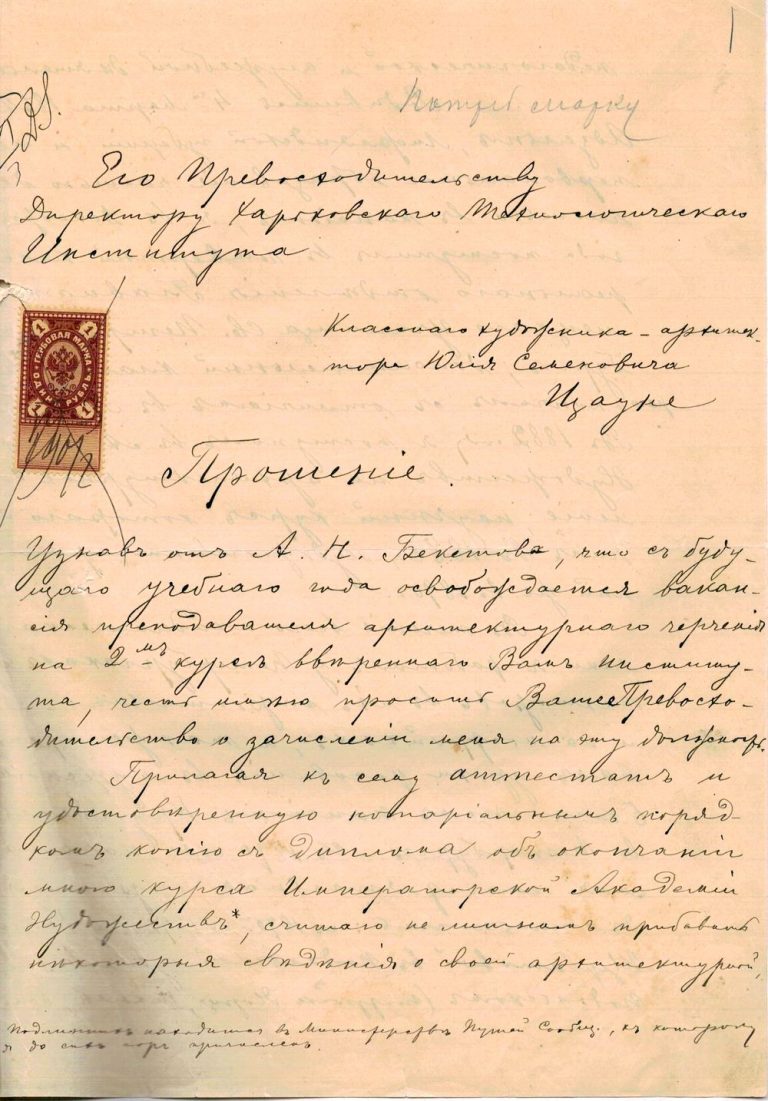 1
марку
Его Превосходительству
Директору Харьковскаго Технологическаго
Института
Класснаго художника-архитек-
тора Юлія Семеновича
Цауне
1 ГЕРБОВАЯ МАРКА 1
1 ОДИНЪ РУБЛЬ 1
Прошеніе.
Узнавъ отъ А. Н. Бекетова, что съ буду-
щаго учебнаго года освобождается вакан-
сія преподавателя архитектурнаго черченія
на 2-мъ курсѣ ввѣреннаго Вамъ институ-
та, честь имѣю просить Ваше Превосхо-
дительство о зачисленіи меня на эту должность.
Прилагая къ сему аттестатъ и
удостовѣренную нотаріальнымъ поряд-
комъ копію съ диплома объ окончаніи
мною курса Императорской Академіи
Художествъ*, считаю не лишнимъ прибавить
нѣкоторыя свѣдѣнія о своей архитектурной,
Подлинникъ находится въ Министерствѣ Путей Сообщ., къ которому
я до сихъ поръ причисленъ.